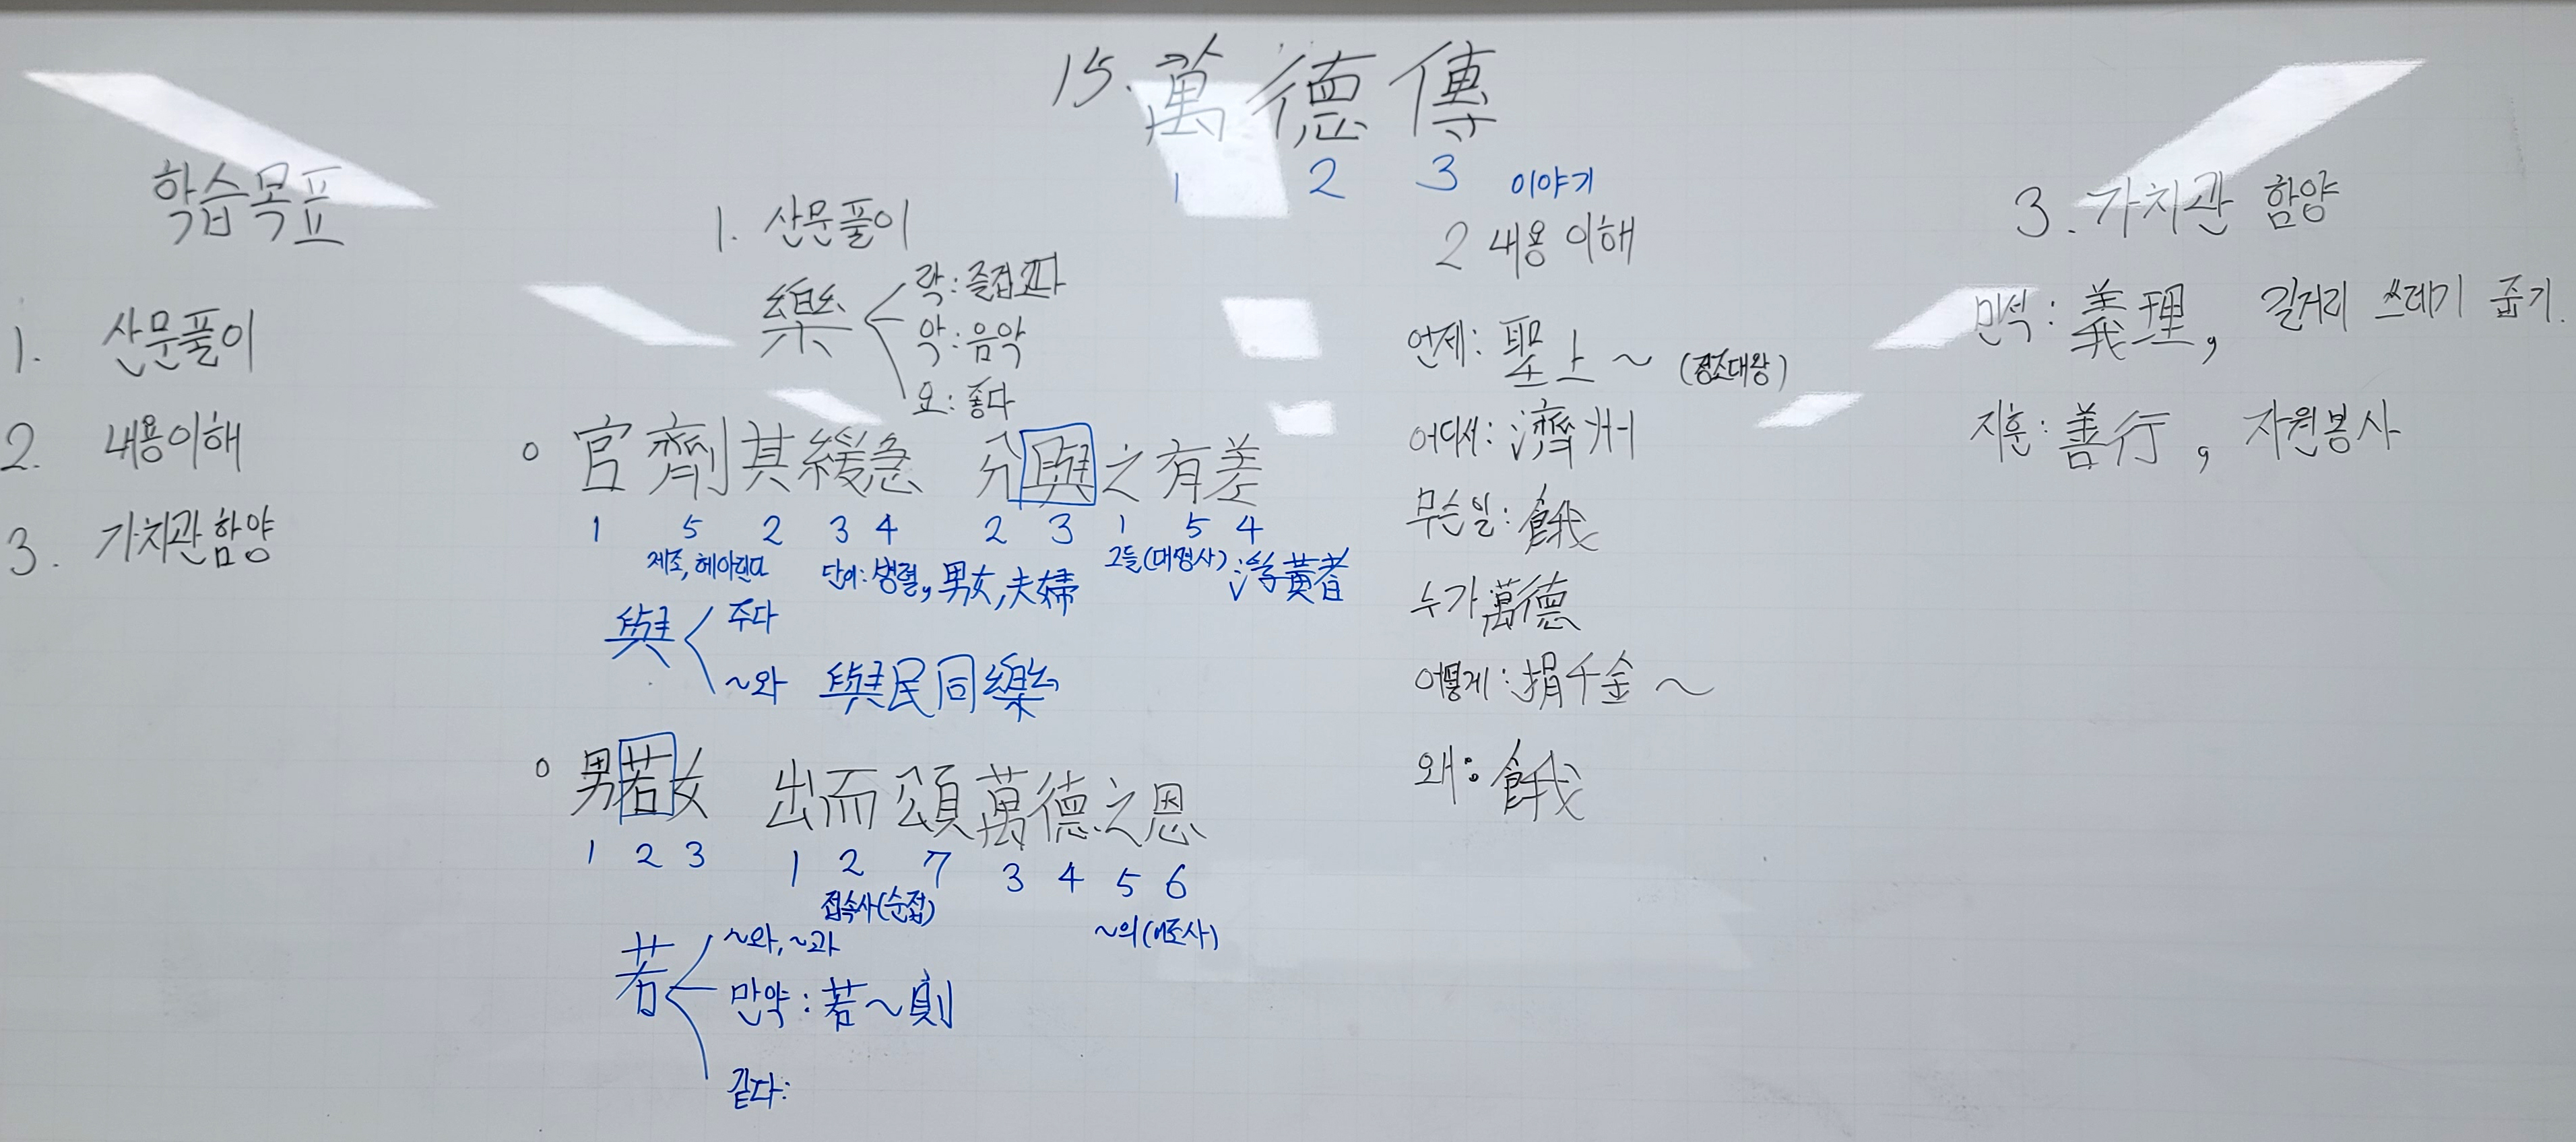 15. 萬德傳
1 2 3 이야기
학습목표
1. 산문풀이
2. 내용이해
3. 가치관함양
1. 산문풀이
樂
락: 즐겁다
악: 음악
요: 좋다
○ 官劑其緩急 分與之有差
1 5 2 3 4 2 3 1 5 4
제조, 헤아린다 단어: 병렬, 男女, 夫婦 그들(대명사): 浮黃者
與
주다
~와 與民同樂
○ 男若女 出而頌萬德之恩
1 2 3 1 2 7 3 4 5 6
접속사(순접)
~의(어조사)
若
~와, ~과
만약: 若~則
같다:
2 내용 이해
언제: 聖上~ (정조대왕)
어디서: 濟州
무슨일: 餓
누가 萬德
어떻게: 捐千金~
왜: 餓
3. 가치관 함양
민석: 義理, 길거리 쓰레기 줍기.
지훈: 善行, 자원봉사